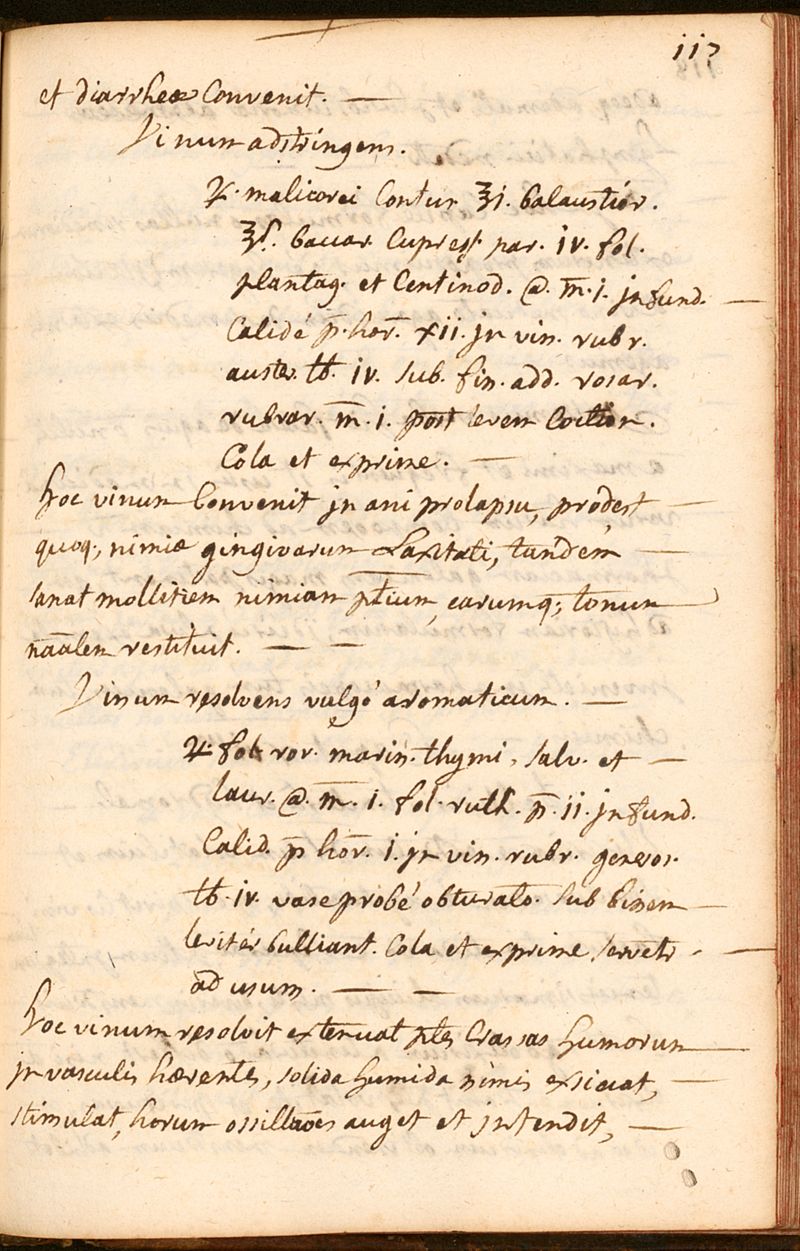 117
et diarrheæ Convenit. —
Vinum adstringens.
♃. malicorei Contus ℥j. balaustior.
℥ß. baccar. Cupress. par. iv. fol.
plantag. et Centinod. a. m̄. j. jnfund. —
Calidé p̄. hor̄. xii. jn vin. rubr.
auster. ℔. iv. sub. fin. add. rosar.
rubrar. m̄. i. post levem Coction.
Cola et exprime. —
hoc vinum Convenit jn ani prolapsu, prodest —
quoq;, nimiæ gingivarum Laxitati, tandem —
sanat mollitiem nimiam pt̄ium, earumq; tonum
nāālem restituit. — —
Vinum resolvens vulgó aromaticum. —
♃. fol. ror. marin. thymi, salv. et —
laur. a. m̄. i. fol. ruth. p̄. ii. jnfund.
Calid. p̄ hor̄. i. jn vin. rubr. generos.
℔. iv. vase probé obturato. sub finem —
levitér bulliant. Cola et exprime servetr —
ad usum. — —
hoc vinum resolvit extenuat pt̄es Crassas humorum —
jn vasculis hærentes, solida humida nimis exsiccat, —
stimulat, horum ossillāoes auget et jntendit, —